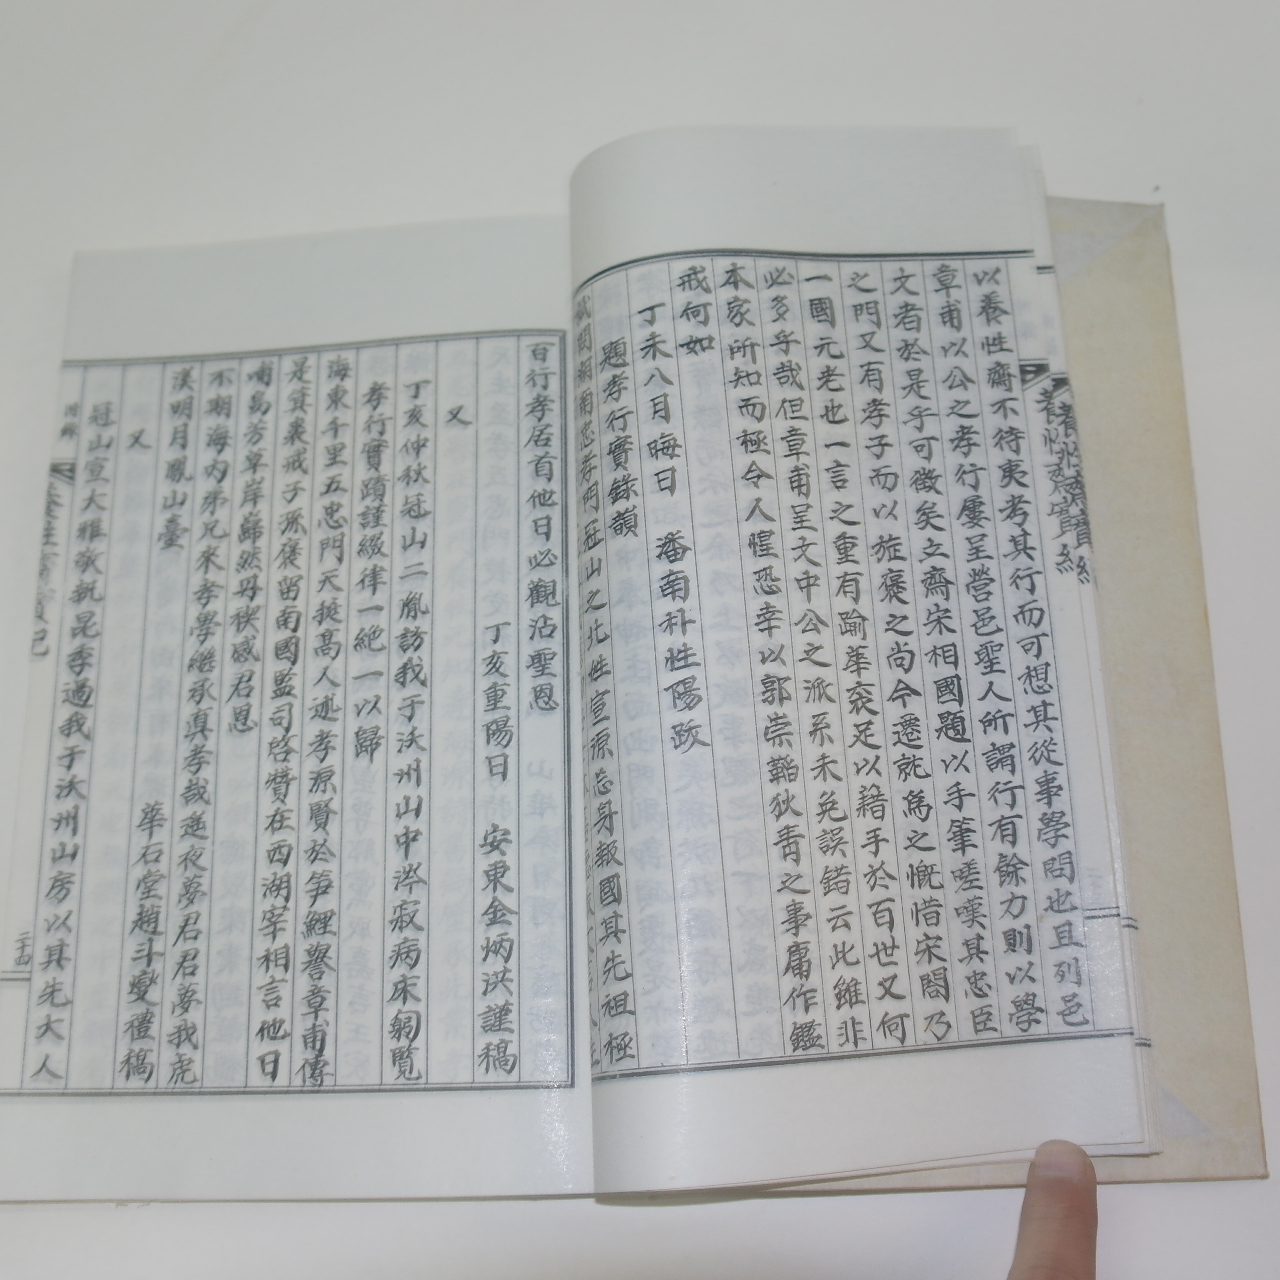 以養性齋不待夷考其行而可想其從事學問也且列邑
章甫以公之孝行屢呈營邑聖人所謂行有餘力則以學
文者於是乎可徵矣立齋宋相國題以手筆嗟嘆其忠臣
之門又有孝子而以旌褒之尚今遷就爲之慨惜宋閤乃
一國元老也一言之重有踰華袞足以藉手於百世又何
必多乎哉但章甫呈文中公之派系未免誤錯云此雖非
本家所知而極令人惶恐幸以郭崇韜狄靑之事庸作鑑
戒何如
丁未八月晦日 潘南朴性陽跋
題孝行實錄韻
忠孝門冠山之北性宣源忘身報國其先祖極
百行孝居首他日必觀沾聖恩
丁亥重陽日 安東金炳洪謹稿
又
丁亥仲秋冠山二胤訪我于沃州山中涔寂病床鞠覽
孝行實蹟謹綴律一絶一以歸
海東千里五忠門天挺髙人述孝源賢於笋鯉譽章甫傳
是箕裘戒子孫褒留南國監司啓贊在西湖宰相言他日
浦昜芳草岸歸然丹楔感君恩
不期海內弟兄來孝學繼承眞孝哉遊夜夢君君夢我虎
溪明月鳳山臺
又 華石堂趙斗燮禮稿
冠山宣大雅敬執昆季過我于沃州山房以其先大人
二十四